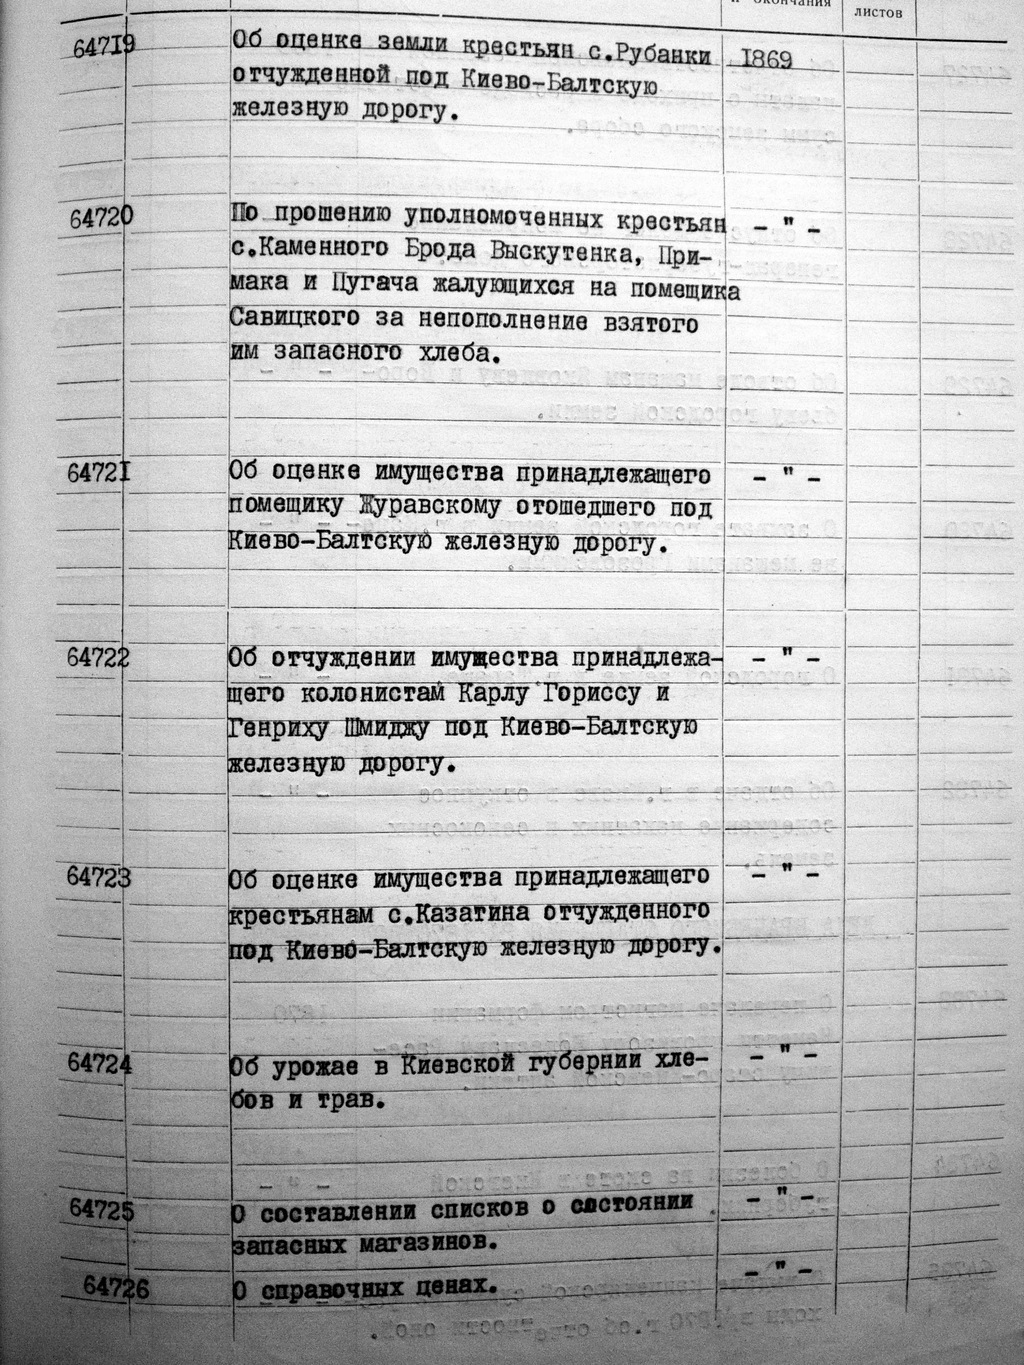 и окончания
листов
64719 Об оценке земли крестьян с.Рубанки 1869
отчужденной под Киево-Балтскую
железную дорогу.
64720 По прошению уполномоченных крестьян - " -
с.Каменного Брода Выскутенка, При-
мака и Пугача жалующихся на помещика
Савицкого за непополнение взятого
им запасного хлеба.
64721 Об оценке имущества принадлежащего - " -
помещику Журавскому отошедшего под
Киево-Балтскую железную дорогу.
64722 Об отчуждении имущества принадлежа- - " -
щего колонистам Карлу Гориссу и
Генриху Шмиджу под Киево-Балтскую
железную дорогу.
64723 Об оценке имущества принадлежащего - " -
крестьянам с.Казатина отчужденного
под Киево-Балтскую железную дорогу.
64724 Об урожае в Киевской губернии хле- - " -
бов и трав.
64725 О составлении списков о состоянии - " -
запасных магазинов.
64726 О справочных ценах. - " -